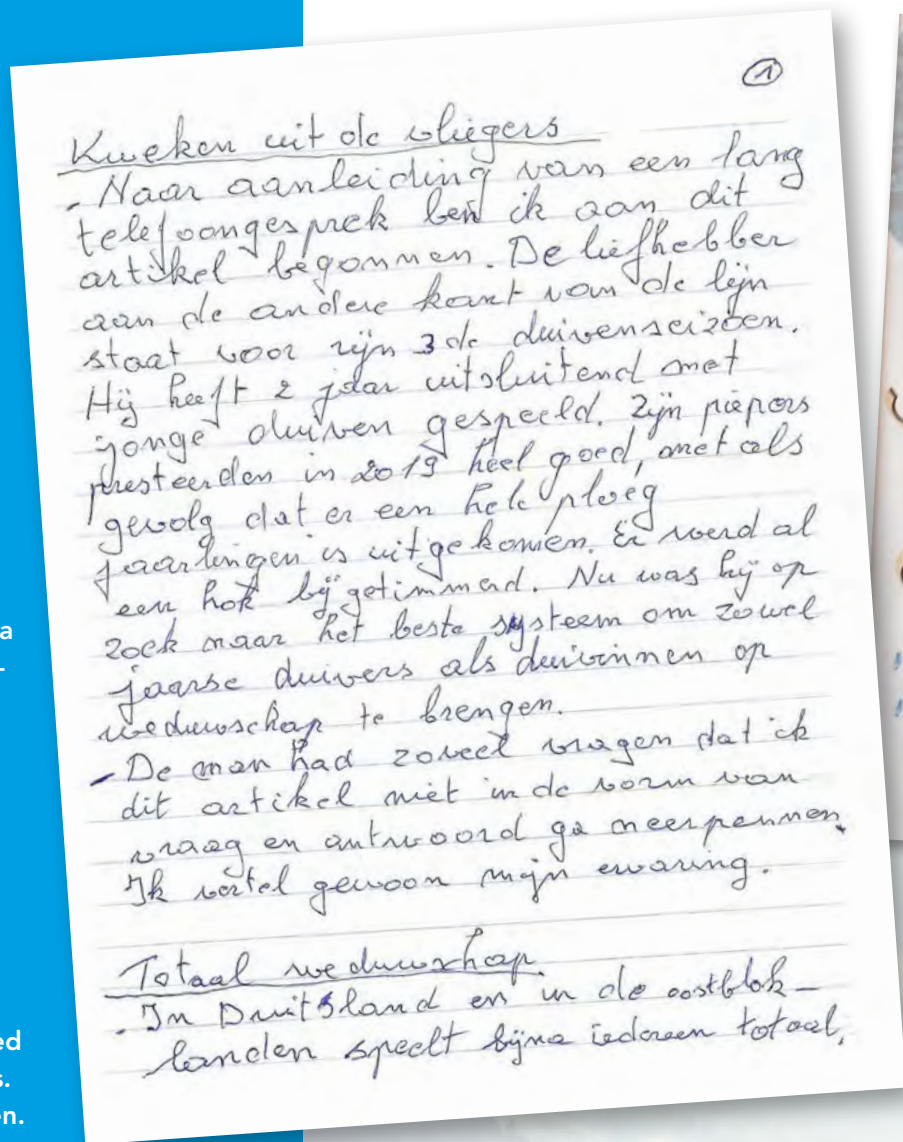 ①
Kweken uit de vliegers
- Naar aanleiding van een lang
telefoongesprek ben ik aan dit
artikel begonnen. De liefhebber
aan de andere kant van de lijn
staat voor zijn 3de duivenseizoen.
Hij heeft 2 jaar uitsluitend met
jonge duiven gespeeld. Zijn piepers
presteerden in 2019 heel goed, met als
gevolg dat er een hele ploeg
jaarlingen is uitgekomen. Er werd al
een hok bij getimmerd. Nu was hij op
zoek naar het beste systeem om zowel
jaarse duivers als duivinnen op
weduwschap te brengen.
- De man had zoveel vragen dat ik
dit artikel niet in de vorm van
vraag en antwoord ga neerpennen.
Ik vertel gewoon mijn ervaring.
Totaal weduwschap.
- In Duitsland en in de oostblok-
landen speelt bijna iedereen totaal,
a
-
ed
s.
en.